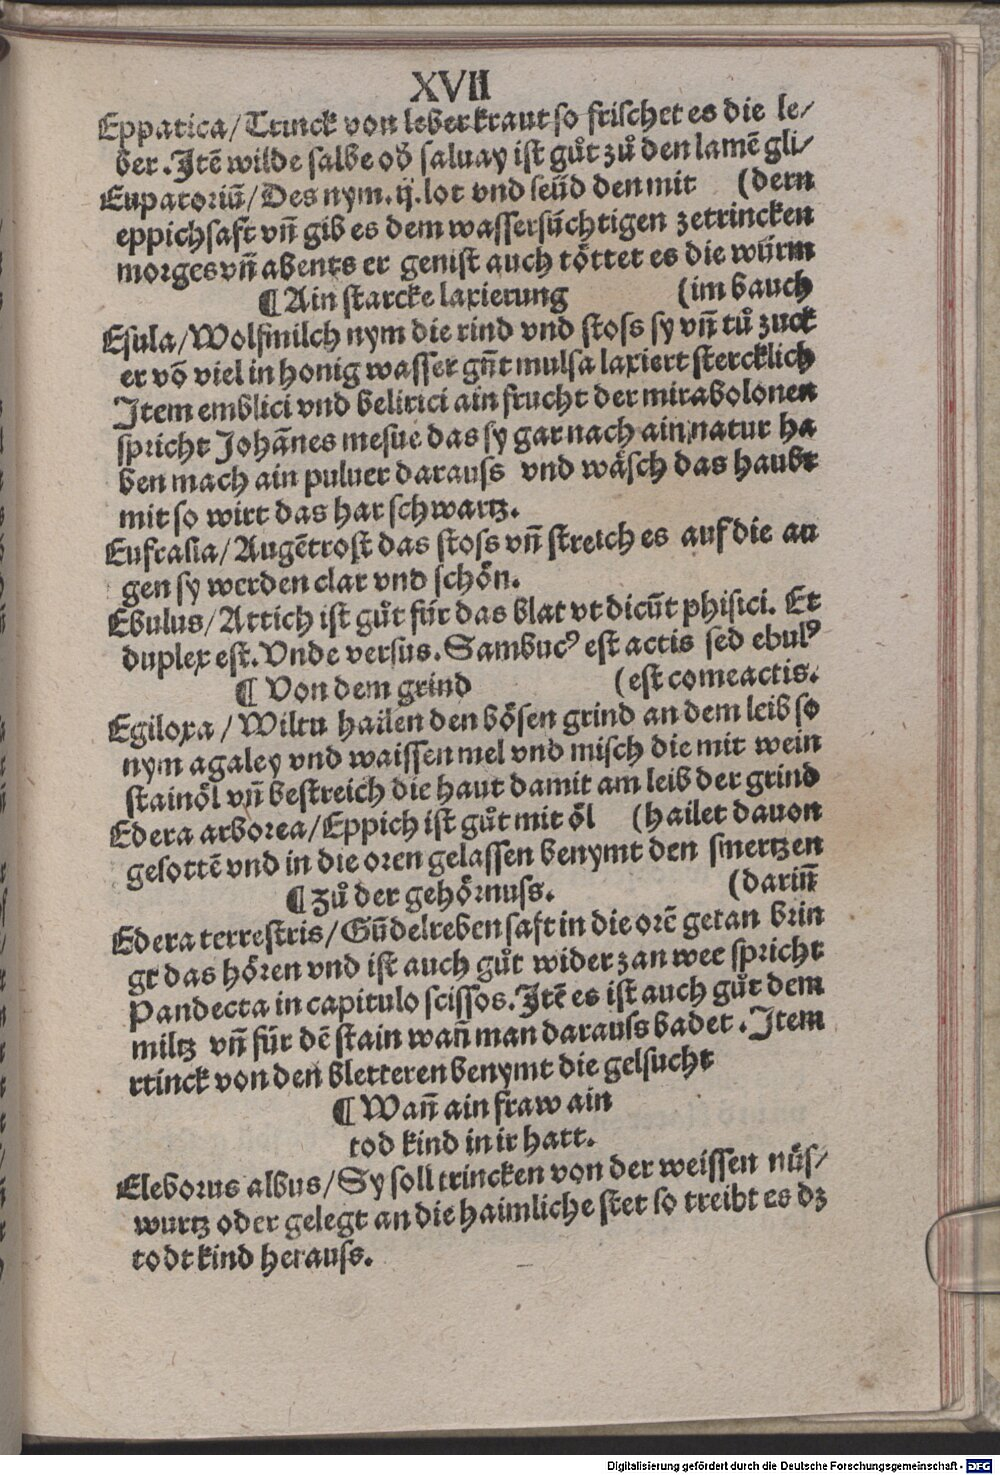 XVII
Eppatica/Trinck von leberkraut so frischet es die le/
ber. Jtē wilde salbe oď saluay ist gůt zů den lamē gli/
Eupatoriū/Des nym.ij.lot vnd seüd den mit (dern
eppichsaft vn̄ gib es dem wassersüchtigen zetrincken
morges vn̄ abents er genist auch töttet es die würm
¶ Ain starcke laxierung (im bauch
Esula/Wolfmilch nym die rind vnd stoss sy vn̄ tů zuck
er vō viel in honig wasser gn̄t mulsa laxiert stercklich
Jtem emblici vnd belirici ain frucht der mirabolonen
spricht Johānes mesue das sy gar nach ain natur ha
ben mach ain puluer darauss vnd wäsch das haubt
mit so wirt das har schwartz.
Eufrasia/Augētrost das stoss vn̄ streich es auf die au
gen sy werden clar vnd schön.
Ebulus/Attich ist gůt für das blat vt dicūt phisici. Et
duplex est. Vnde versus. Sambucꝰ est actis sed ebulꝰ
¶ Von dem grind (est comeactis.
Egiloxa/Wiltu hailen den bösen grind an dem leib so
nym agaley vnd waissen mel vnd misch die mit wein
stainöl vn̄ bestreich die haut damit am leib der grind
Edera arborea/Eppich ist gůt mit öl (hailet dauon
gesottē vnd in die oren gelassen benymt den smertzen
¶ Zů der gehörnuss. (darin̄
Edera terrestris/Gūdelreben saft in die orē getan brin
gt das hören vnd ist auch gůt wider zan wee spricht
Pandecta in capitulo scissos. Jtē es ist auch gůt dem
miltz vn̄ für dē stain wan̄ man darauss badet. Jtem
rtinck von den bletteren benymt die gelsucht
¶ Wan̄ ain fraw ain
tod kind in ir hatt.
Eleborus albus/Sy soll trincken von der weissen nüs/
wurtz oder gelegt an die haimliche stet so treibt es dz
todt kind herauss.
Digitalisierung gefördert durch die Deutsche Forschungsgemeinschaft - DFG